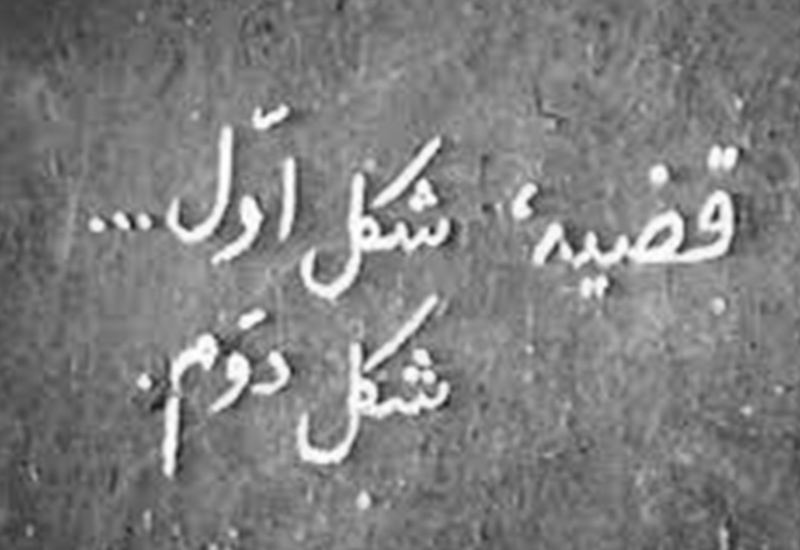 قضیه، شکل اوّل...
شکل دوّم.